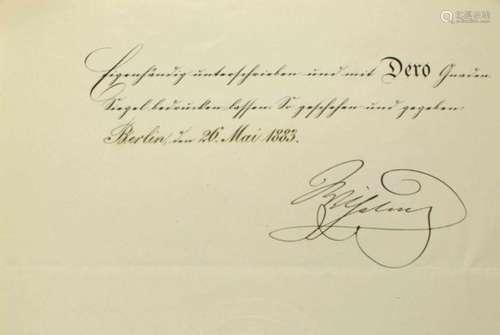 Eigenhändig unterschrieben und mit Dero Gnaden
Siegel bedrucken lassen. So geschehen und gegeben
Berlin, den 26. Mai 1883.
Wilhelm